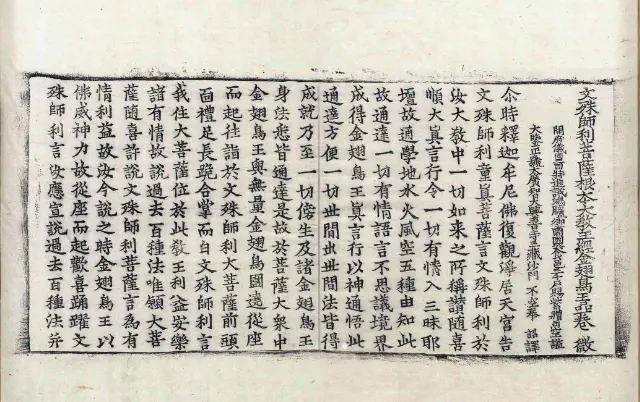 文殊師利菩薩根本大教王經金翅鳥王品卷 微
開府儀同三司特進試鴻臚卿肅國公食邑三千戶賜紫贈司空謚
大鑒正號大廣智大興善寺三藏沙門 不空奉 詔譯
尒時釋迦牟尼佛復觀淨居天宮告
文殊師利童眞菩薩言文殊師利於
汝大敎中一切如來之所稱讚隨喜
順大眞言行令一切有情入三昧耶
壇故通學地水火風空五種由知此
故通達一切有情語言不思議境界
成得金翅鳥王眞言行以神通悟此
通達方便一切世間出世間法皆得
成就乃至一切傍生及諸金翅鳥王
身法悉皆通達是故於菩薩大衆中
金翅鳥王與無量金翅鳥圍遶從座
而起往詣於文殊師利大菩薩前頭
面禮足長跪合掌而白文殊師利言
我住大菩薩位於此敎王利益安樂
諸有情故說過去百種法唯願大菩
薩隨喜許說文殊師利菩薩言為有
情利益故汝今說之時金翅鳥王以
佛威神力故從座而起歡喜踊躍文
殊師利言汝應宣說過去百種法尒